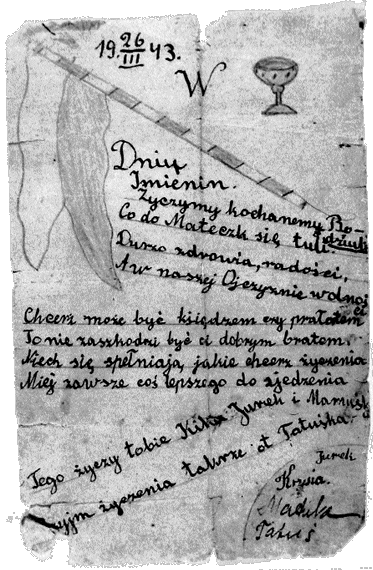 19 26/III 43.
W
Dniu
Imienin.
Życzymy kochanemu Bo-
dziuli
Co do Mateczk się tuli.
Durzo zdrowia, radości,
A w naszej Ojczyznie wolności
Chcerz może być księdzem czy prałatem
To nie zaszkodzi być ci dobrym bratem.
Niech się spełniają, jakie chcerz życzenia
Miej zawsze coś lepszego do zjedzenia
Tego życzy tobie Jurek i Mamuśka
życzenia także ot Tatuśka.
Jurek
Krysia.
Tatuś